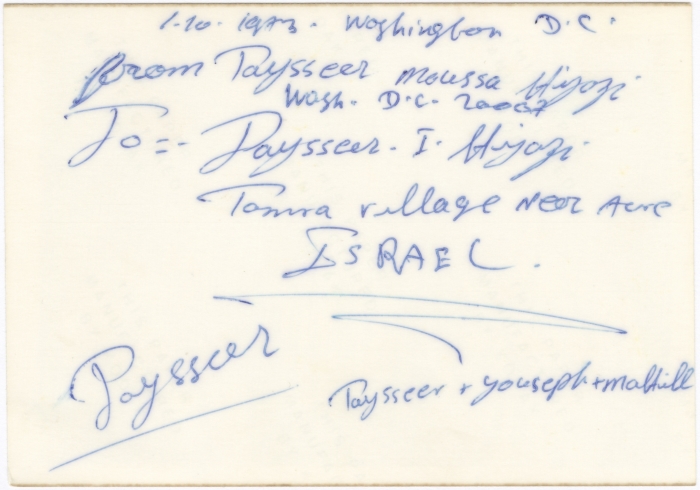 1-10-1973. Washington D.C.
From Taysseer Moussa Hijazi
Wash. D.C. 20007
To:- Taysseer. I. Hijazi
Tamra village Near Acre
ISRAEL.
Taysseer
Taysseer + youseph +